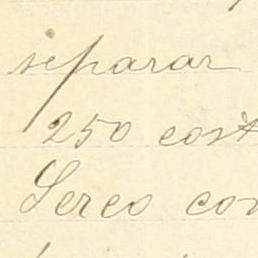 separar
250 cost
Serco con